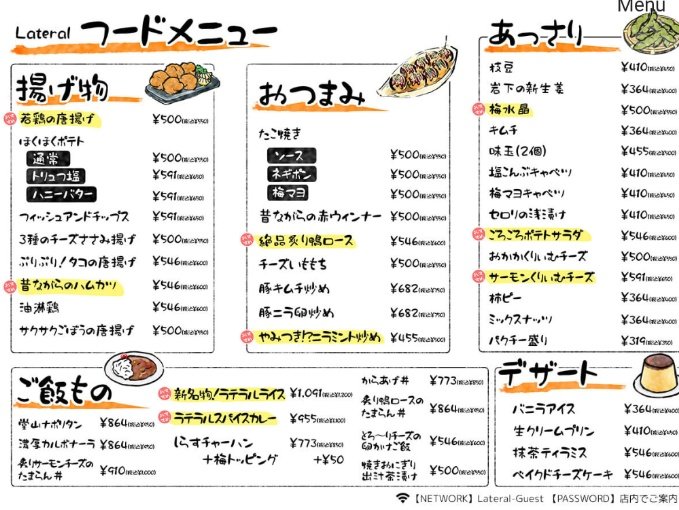 Menu
Lateral フードメニュー
揚げ物
若鶏の唐揚げ ¥500(税込¥550)
ほくほくポテト
通常 ¥500(税込¥550)
トリュフ塩 ¥591(税込¥650)
ハニーバター ¥591(税込¥650)
フィッシュアンドチップス ¥591(税込¥650)
3種のチーズささみ揚げ ¥500(税込¥550)
ぷりぷり!タコの唐揚げ ¥546(税込¥600)
昔ながらのハムカツ ¥546(税込¥600)
油淋鶏 ¥546(税込¥600)
サクサクごぼうの唐揚げ ¥500(税込¥550)
おつまみ
たこ焼き
ソース ¥500(税込¥550)
ネギポン ¥500(税込¥550)
梅マヨ ¥500(税込¥550)
昔ながらの赤ウィンナー ¥500(税込¥550)
絶品炙り鴨ロース ¥546(税込¥600)
チーズいももち ¥500(税込¥550)
豚キムチ炒め ¥682(税込¥750)
豚ニラ卵炒め ¥682(税込¥750)
やみつき!?ニラミント炒め ¥455(税込¥500)
あっさり
枝豆 ¥410(税込¥450)
岩下の新生姜 ¥364(税込¥400)
梅水晶 ¥500(税込¥550)
キムチ ¥364(税込¥400)
味玉(2個) ¥455(税込¥500)
塩こんぶキャベツ ¥410(税込¥450)
梅マヨキャベツ ¥410(税込¥450)
セロリの浅漬け ¥410(税込¥450)
ごろごろポテトサラダ ¥546(税込¥600)
おかかくりぃむチーズ ¥500(税込¥550)
サーモンくりぃむチーズ ¥591(税込¥650)
柿ピー ¥364(税込¥400)
ミックスナッツ ¥364(税込¥400)
パクチー盛り ¥319(税込¥350)
ご飯もの
堂山ナポリタン ¥864(税込¥950)
濃厚カルボナーラ ¥864(税込¥950)
炙りサーモンチーズの
たまらん丼 ¥910(税込¥1,000)
新名物!ラテラルライス ¥1,091(税込¥1,200)
ラテラルスパイスカレー ¥955(税込¥1,050)
しらすチャーハン ¥773(税込¥850)
+梅トッピング +¥50
からあげ丼 ¥773(税込¥850)
炙り鴨ロースの
たまらん丼 ¥864(税込¥950)
とろ〜りチーズの
卵かけご飯 ¥546(税込¥600)
焼きおにぎり
出汁茶漬け ¥500(税込¥550)
デザート
バニラアイス ¥364(税込¥400)
生クリームプリン ¥410(税込¥450)
抹茶ティラミス ¥546(税込¥600)
ベイクドチーズケーキ ¥546(税込¥600)
【NETWORK】Lateral-Guest 【PASSWORD】店内でご案内